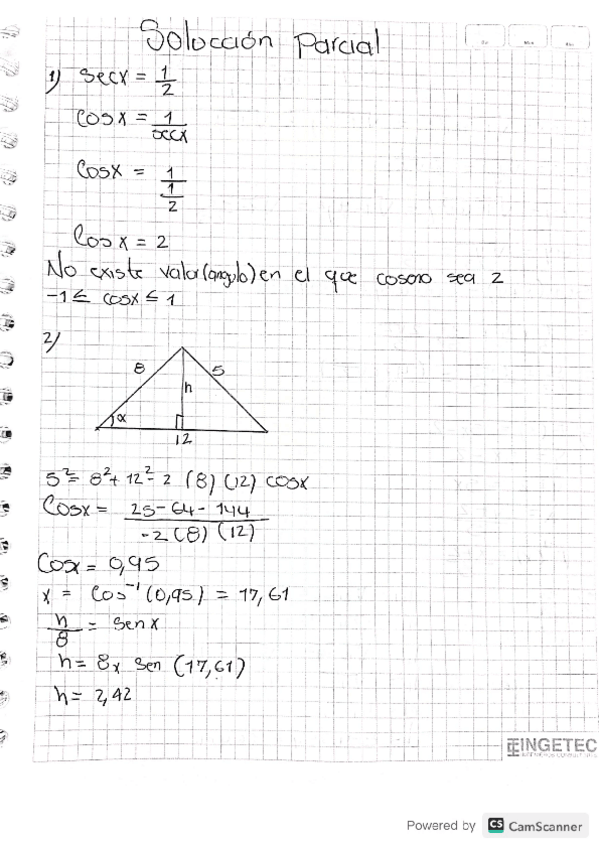 Solocción Parcial
1) secx = 1/2
Cosx = 1/secx
Cosx = 1/(1/2)
Cosx = 2
No existe valor(angulo) en el que coseno sea 2
-1 ≤ cosx ≤ 1
2)
8
5
h
α
12
5² = 8² + 12² - 2 (8) (12) cosx
Cosx = (25 - 64 - 144)/(-2(8)(12))
Cosx = 0,95
x = Cos⁻¹(0,95) = 17,61
h/8 = sen x
h = 8x sen (17,61)
h = 2,42
INGETEC
Powered by CS CamScanner